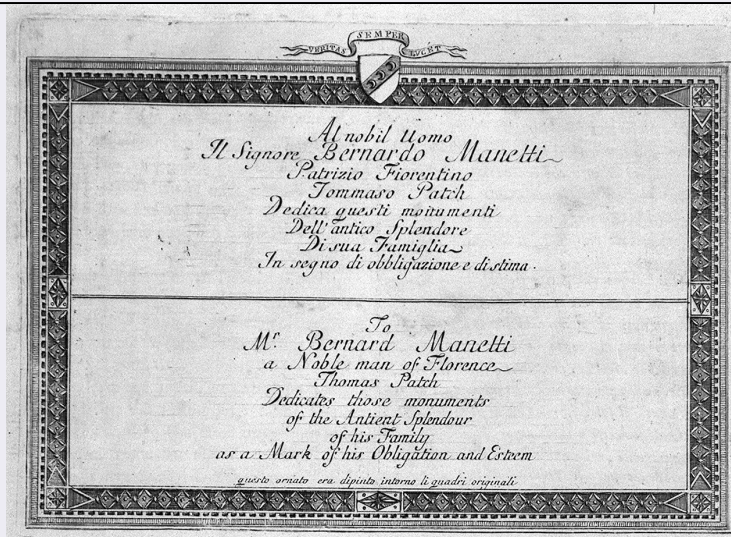 VERITAS SEMPER LUCET
Al nobil Uomo
Il Signore Bernardo Manetti
Patrizio Fiorentino
Tommaso Patch
Dedica questi monumenti
Dell'antico Splendore
Di sua Famiglia
In segno di obbligazione e di stima.
To
Mr. Bernard Manetti
a Noble man of Florence
Thomas Patch
Dedicates those monuments
of the Antient Splendour
of his Family
as a Mark of his Obligation and Esteem
questo ornato era dipinto intorno li quadri originali